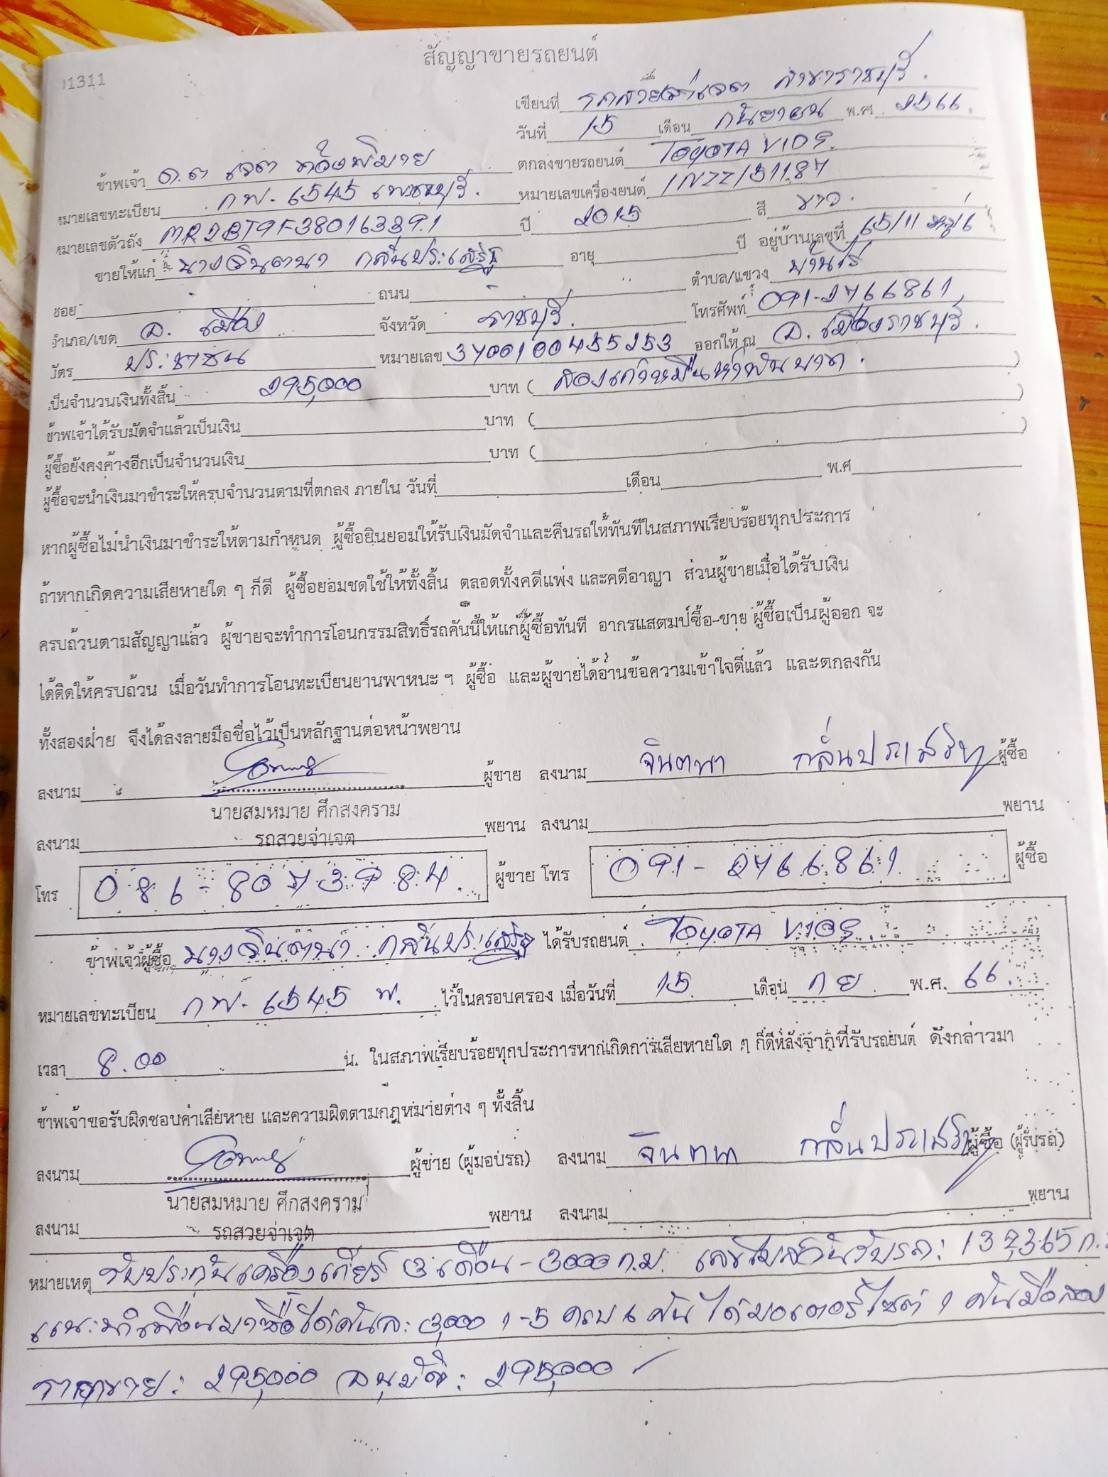 สัญญาขายรถยนต์
1311
เขียนที่ รถสวยจ่าเจต สาขาราชบุรี.
วันที่ 15 เดือน กันยายน พ.ศ. 2566.
ข้าพเจ้า ด.ต เจต ตกลงขายรถยนต์ TOYOTA VIOS.
หมายเลขทะเบียน กพ. 6545 เพชรบุรี. หมายเลขเครื่องยนต์ 1NZZ151187
หมายเลขตัวถัง MR2BT9F380163391 ปี 2015 สี ขาว.
ขายให้แก่ นางจินตนา กลิ่นประเสริฐ อายุ ปี อยู่บ้านเลขที่ 65/11 หมู่ 6
ซอย ถนน ตำบล/แขวง
อำเภอ/เขต อ. เมือง จังหวัด ราชบุรี. โทรศัพท์ 091-2766861
บัตร ประชาชน หมายเลข 3700100455253 ออกให้ ณ อ. เมืองราชบุรี.
เป็นจำนวนเงินทั้งสิ้น 295,000 บาท ( สองแสนเก้าหมื่นห้าพันบาท. )
ข้าพเจ้าได้รับมัดจำแล้วเป็นเงิน บาท ( )
ผู้ซื้อยังคงค้างอีกเป็นจำนวนเงิน บาท ( )
ผู้ซื้อจะนำเงินมาชำระให้ครบจำนวนตามที่ตกลง ภายใน วันที่ เดือน พ.ศ
หากผู้ซื้อไม่นำเงินมาชำระให้ตามกำหนด ผู้ซื้อยินยอมให้รับเงินมัดจำและคืนรถให้ทันทีในสภาพเรียบร้อยทุกประการ
ถ้าหากเกิดความเสียหายใด ๆ ก็ดี ผู้ซื้อยอมชดใช้ให้ทั้งสิ้น ตลอดทั้งคดีแพ่ง และคดีอาญา ส่วนผู้ขายเมื่อได้รับเงิน
ครบถ้วนตามสัญญาแล้ว ผู้ขายจะทำการโอนกรรมสิทธิ์รถคันนี้ให้แก่ผู้ซื้อทันที อากรแสตมป์ซื้อ-ขาย ผู้ซื้อเป็นผู้ออก จะ
ได้ติดให้ครบถ้วน เมื่อวันทำการโอนทะเบียนยานพาหนะ ฯ ผู้ซื้อ และผู้ขายได้อ่านข้อความเข้าใจดีแล้ว และตกลงกัน
ทั้งสองฝ่าย จึงได้ลงลายมือชื่อไว้เป็นหลักฐานต่อหน้าพยาน
ลงนาม ผู้ขาย ลงนาม จินตนา กลิ่นประเสริฐ ผู้ซื้อ
นายสมหมาย ศึกสงคราม
ลงนาม รถสวยจ่าเจต พยาน ลงนาม พยาน
โทร 086-8073984. ผู้ขาย โทร 091-2766861 ผู้ซื้อ
ข้าพเจ้าผู้ซื้อ นางจินตนา กลิ่นประเสริฐ ได้รับรถยนต์ TOYOTA VIOS.
หมายเลขทะเบียน กพ. 6545 พ. ไว้ในครอบครอง เมื่อวันที่ 15 เดือน กย. พ.ศ. 66.
เวลา 8.00 น. ในสภาพเรียบร้อยทุกประการหากเกิดการเสียหายใด ๆ ก็ดีหลังจากที่รับรถยนต์ ดังกล่าวมา
ข้าพเจ้าขอรับผิดชอบค่าเสียหาย และความผิดตามกฎหมายต่าง ๆ ทั้งสิ้น
ลงนาม ผู้ขาย (ผู้มอบรถ) ลงนาม จินตนา กลิ่นประเสริฐ ผู้ซื้อ (ผู้รับรถ)
นายสมหมาย ศึกสงคราม
ลงนาม รถสวยจ่าเจต พยาน ลงนาม พยาน
หมายเหตุ รับประกันเครื่องเกียร์ 3 เดือน - 3000 ก.ม. เลขไมล์วันรับรถ: 132,365 ก.
แนะนำเพื่อนมาซื้อได้คันละ 3,000 1-5 ครบ 6 คัน ได้มอเตอร์ไซต์ 1 คันมือสอง
ราคาขาย: 295,000 อนุมัติ: 295,000